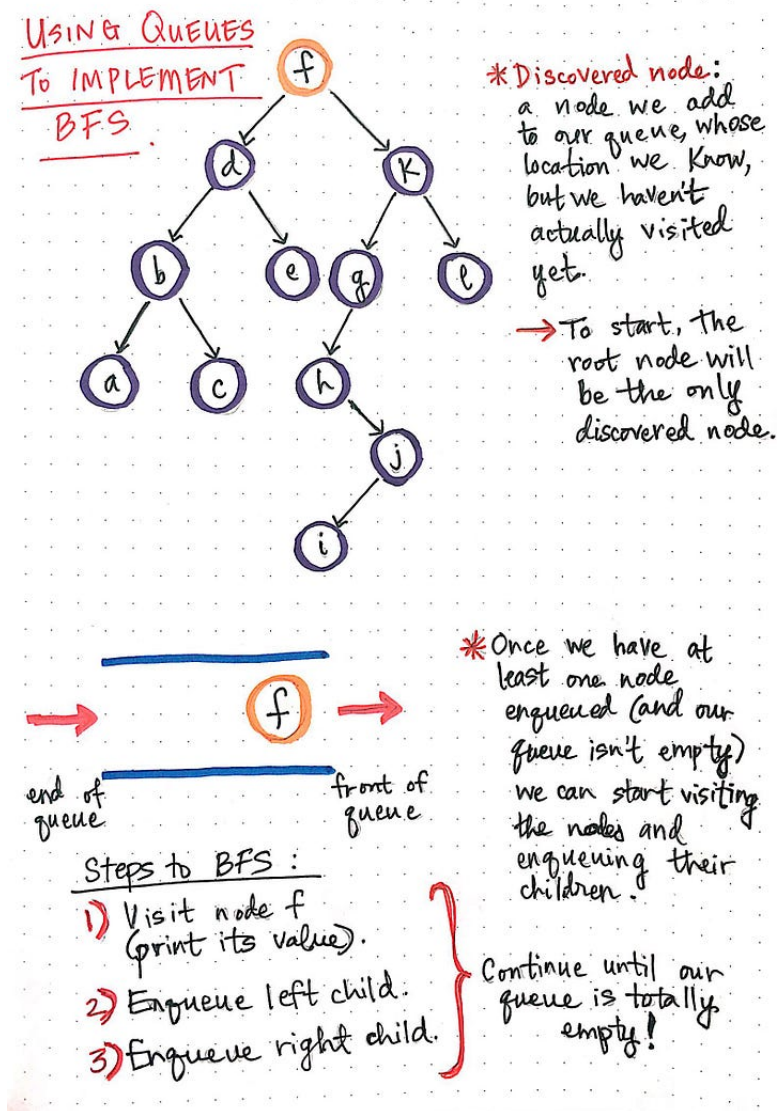 USING QUEUES
TO IMPLEMENT
BFS.
f
d
k
b
e
g
l
a
c
h
j
i
* Discovered node:
a node we add
to our queue, whose
location we know,
but we haven't
actually visited
yet.
→ To start, the
root node will
be the only
discovered node.
f
end of
queue
front of
queue
* Once we have at
least one node
enqueued (and our
queue isn't empty)
we can start visiting
the nodes and
enqueuing their
children.
Steps to BFS :
1) Visit node f
(print its value).
2) Enqueue left child.
3) Enqueue right child.
Continue until our
queue is totally
empty!